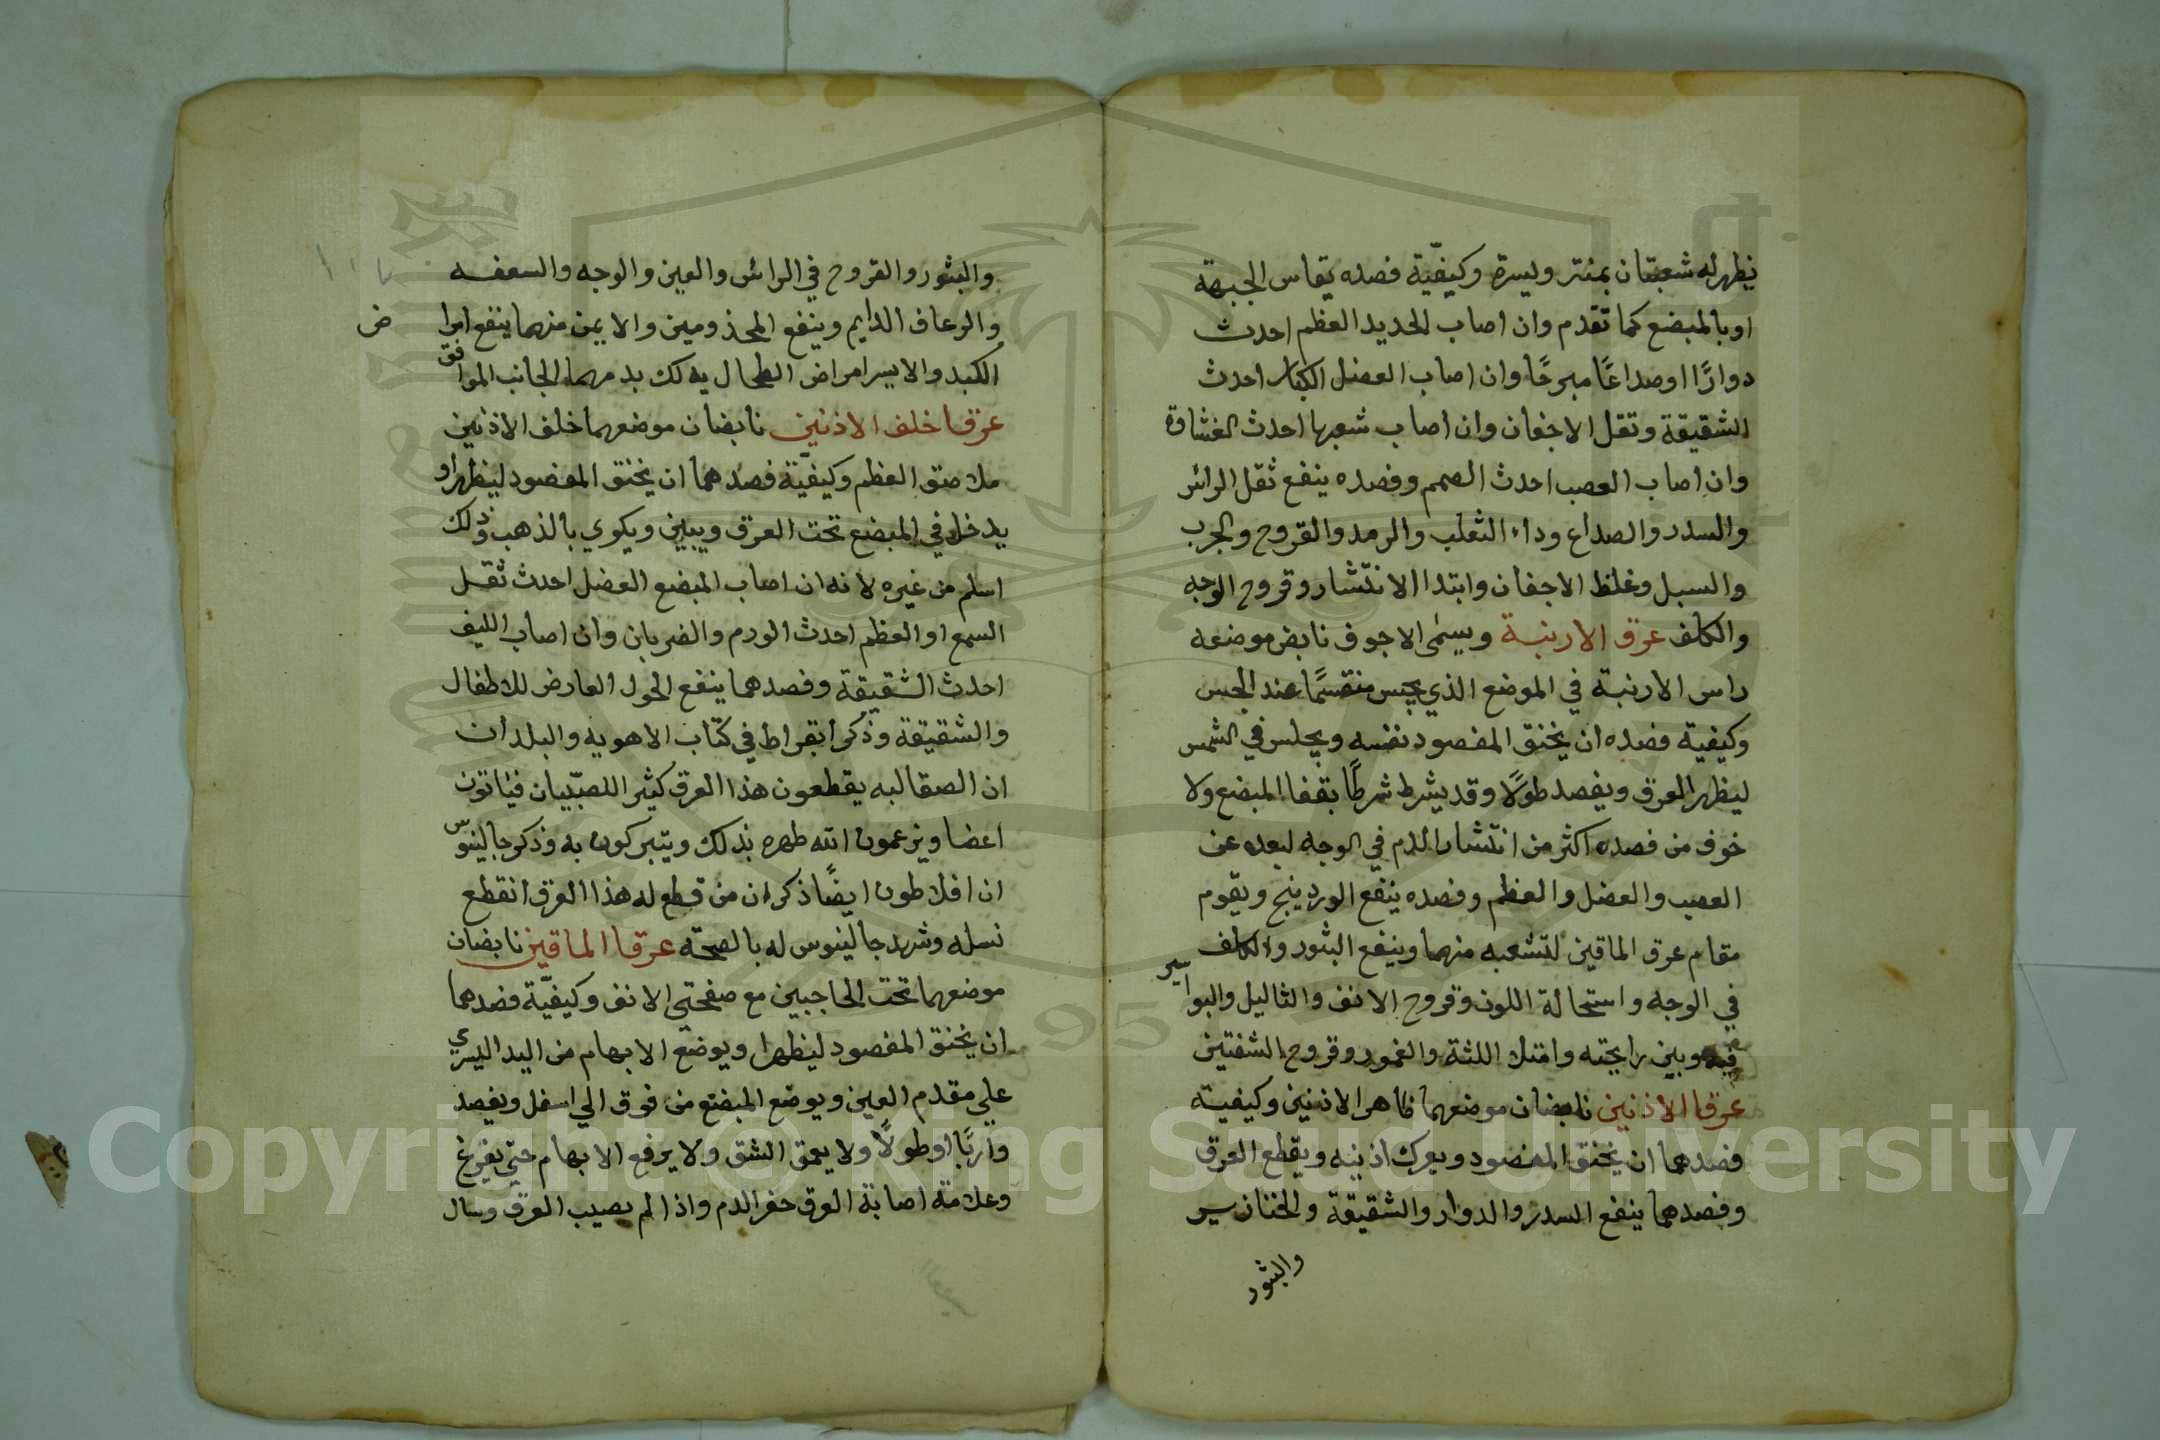 يظهر له شعبتان يمنتر ويسرة وكيفيّة فصده يقاس الجبهة
او بالمبضع كما تقدم وان اصاب الحديد العظم احدث
دوارًا او صداعًا مبرحًا وان اصاب العضل الكبار احدث
الشقيقة وتقل الاجفان وان اصاب شعبها احدث الغشاوة
وان اصاب العصب احدث الصمم وفصده ينفع ثقل الراس
والسدر والصداع وداء الثعلب والرمد والقروح والجرب
والسبل وغلظ الاجفان وابتدا الانتشار وقروح الوجه
والكلف عرق الارنبة ويسمى الاجوف نابض موضعه
راس الارنبة في الموضع الذي يجس منقسمًا عند الجس
وكيفية فصده ان يخنق المفصود نفسه ويجلس في الشمس
ليظهر العرق ويفصد طولًا وقد يشرط شرطًا بقفا المبضع ولا
خوف من فصده اكثر من انتشار الدم في الوجه لبعده عن
العصب والعضل والعظم وفصده ينفع الوردينج ويقوم
مقام عرق الماقين لتشعبه منهما وينفع البثور والكلف
في الوجه واستحالة اللون وقروح الانف والثاليل والبواسير
فيه وبين رايحته وامتلا اللثة والغمور وقروح الشفتين
عرقا الاذنين نابضان موضعهما ظاهر الاذنين وكيفيته
فصدهما ان يخنق المفصود ويعرك اذنيه ويقطع العرق
وفصدهما ينفع السدر والدوار والشقيقة والخنازير
والبثور
والبثور والقروح في الراس والعين والوجه والسعفه
والرعاف الدايم وينفع المجذومين والايمن منهما ينفع امرا
ض
الكبد والايسر امراض الطحال يدلك بدمهما الجانب الموافق
عرقا خلف الاذنين نابضان موضعهما خلف الاذنين
ملاصق العظم وكيفيّة فصدهما ان يخنق المفصود ليظهر او
يدخل في المبضع تحت العرق ويبين ويكوي بالذهب وذلك
اسلم من غيره لانه ان اصاب المبضع العضل احدث ثقل
السمع او العظم احدث الورم والضربان وان اصاب الليف
احدث الشقيقة وفصدهما ينفع الحول العارض للاطفال
والشقيقة وذكر أبقراط في كتاب الاهويه والبلدان
ان الصقالبه يقطعون هذا العرق كثير اللصّبيان فياتون
اعضا ويزعمون الله طهره بذلك ويتبركون به وذكر جالينوس
ان افلاطون ايضًا ذكر ان من قطع له هذا العرق انقطع
نسله وشهد جالينوس له بالصحّه عرقا الماقين نابضان
موضعهما تحت الحاجبين مع صفحتي الانف وكيفيّة فصدهما
ان يخنق المفصود ليظهرا ويوضع الابهام من اليد اليسري
علي مقدم العين ويوضع المبضع من فوق الي اسفل ويفصد
وأربًا او طولًا ولا يعمق الشق ولا يرفع الابهام حتي يفرغ
وعلامة اصابة العرق حفز الدم واذا لم يصيب العرق وسال
Copyright © King Saud University